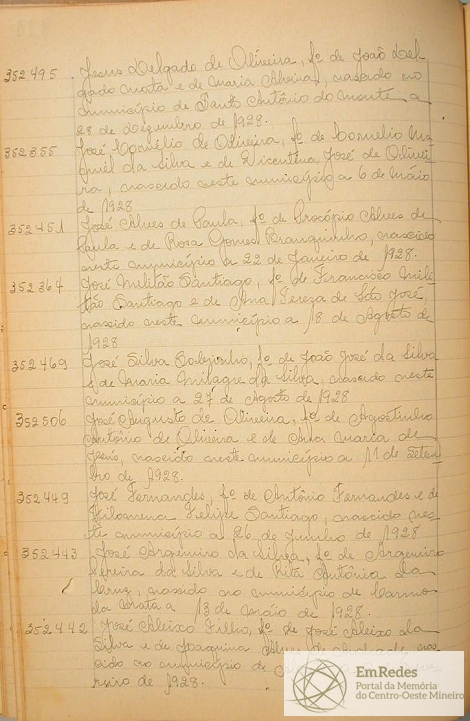 352495 Jesus Delgado de Oliveira, fº de João Del-
gado Mota e de Maria Alvina, nascido no
município de Santo Antônio do Monte a
28 de Dezembro de 1928.
352355 José Cornélio de Oliveira, fº de Cornelio Ma
noel da Silva e de Vicentina José de Olivei
ra, nascido neste município a 6 de Maio
de 1928
352451 José Alves de Paula, fº de Procópio Alves de
Paula e de Rosa Gomes Branquinho, nascido
neste município a 22 de Janeiro de 1928.
352364 José Militão Santiago, fº de Francisco Mili
tão Santiago e de Ana Tereza de São José,
nascido neste município a 18 de Agosto de
1928
352469 José Silva, fº de João José da Silva
e de Maria Milagre da Silva, nascido neste
município a 27 de Agosto de 1928
352506 José Augusto de Oliveira, fº de Agostinho
Antônio de Oliveira e de Ana Maria de
Jesus, nascido neste município a 11 de Setem
bro de 1928.
352449 José Fernandes, fº de Antônio Fernandes e de
Filomena Felipe Santiago, nascido nes
te município a 26 de Junho de 1928
352443 José Argemiro da Silva, fº de Argemiro
Pereira da Silva e de Rita Antônia da
Cruz, nascido no município de Carmo
da Mata a 13 de Maio de 1928.
352442 José Aleixo Filho, fº de José Aleixo da
Silva e de Joaquina Alves de nas
cido no município de
reiro de 1928.
EmRedes
Portal da Memória
do Centro-Oeste Mineiro